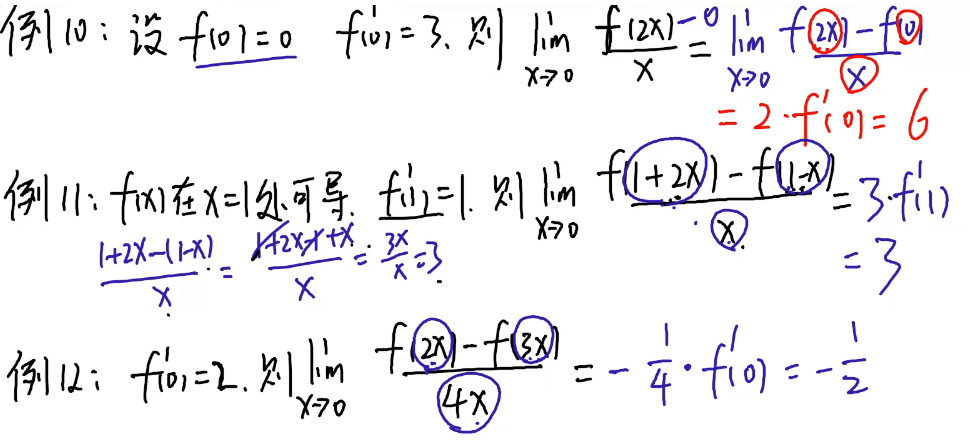 例10: 设 f(0)=0 f'(0)=3. 则 lim x→0 f(2x)-0 / x = lim x→0 f(2x)-f(0) / x
= 2·f'(0) = 6
例11: f(x)在x=1处可导. f'(1)=1. 则 lim x→0 f(1+2x)-f(1-x) / x = 3·f'(1)
1+2x-(1-x) / x = 1+2x-1+x / x = 3x / x = 3. = 3
例12: f'(0)=2. 则 lim x→0 f(2x)-f(3x) / 4x = -1/4·f'(0) = -1/2